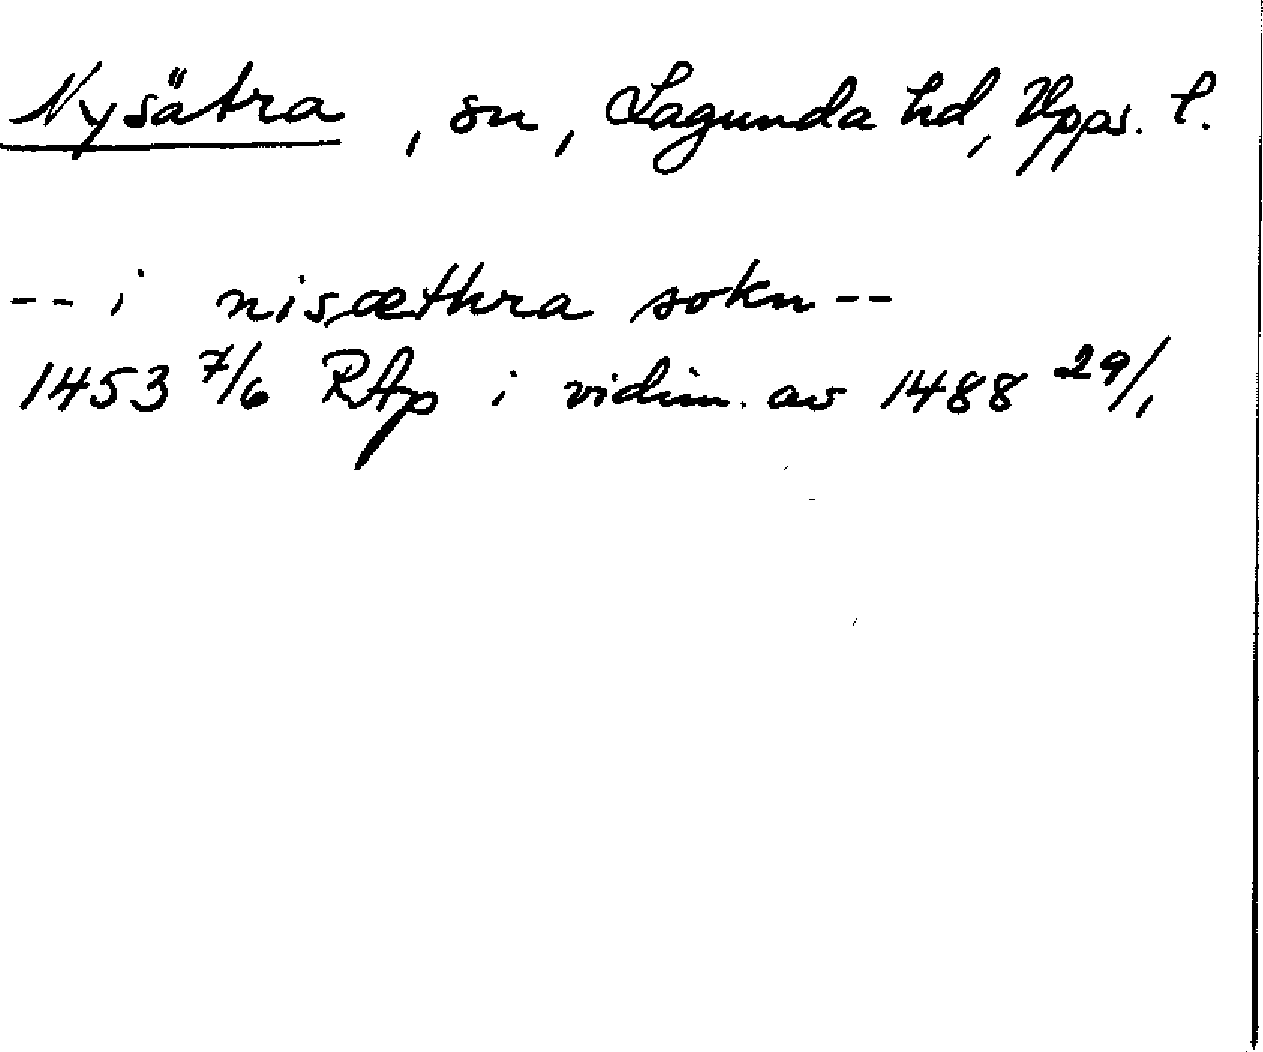 Nysätra, sn, Lagunda hd, Upps. l.
-- i nisæthra sokn --
1453 7/6 RAp i vidim. av 1488 29/1